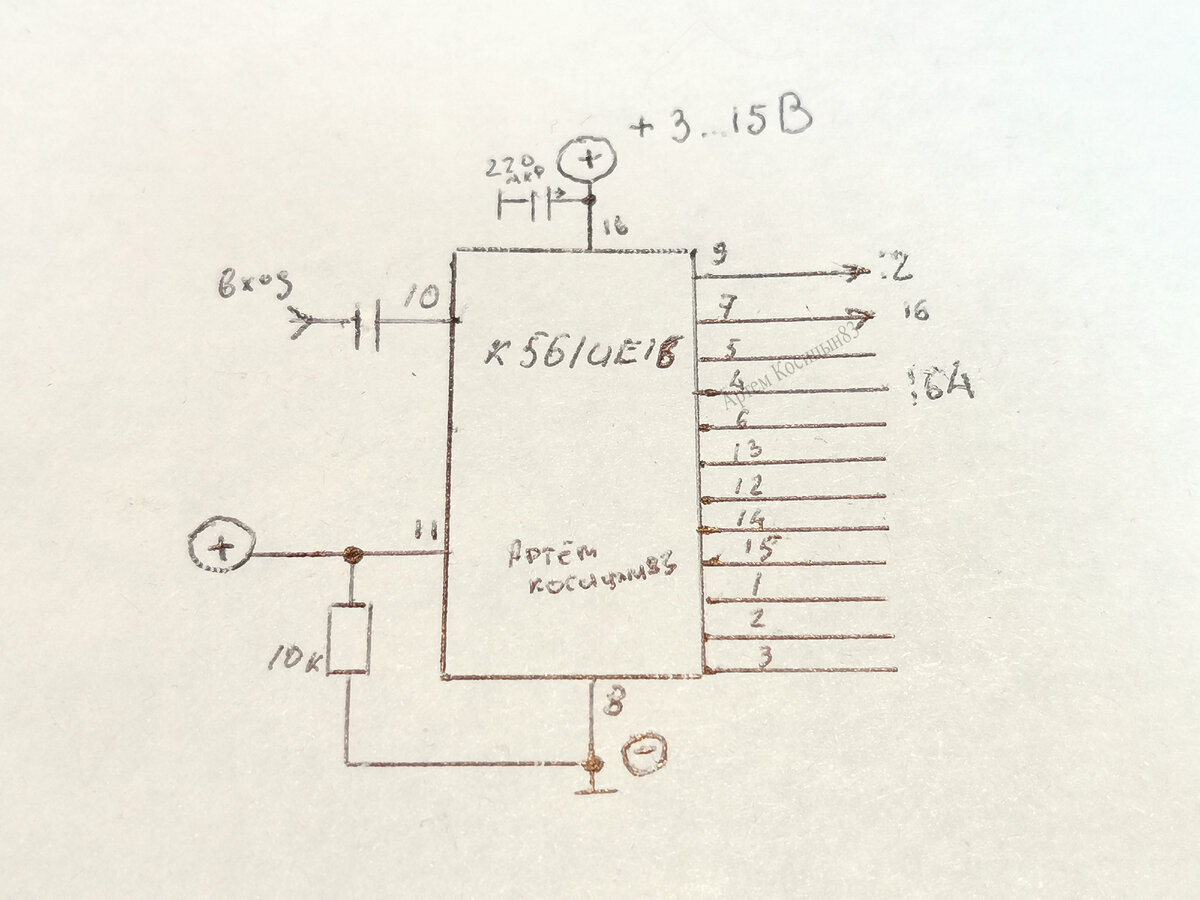 + 3...15В
+
220
мкф
16
вход
10
К561ИЕ16
9
:2
7
16
5
4
:64
6
13
12
14
15
1
2
3
Артём Косицын83
+
11
Артём
косицын83
10к
8
-